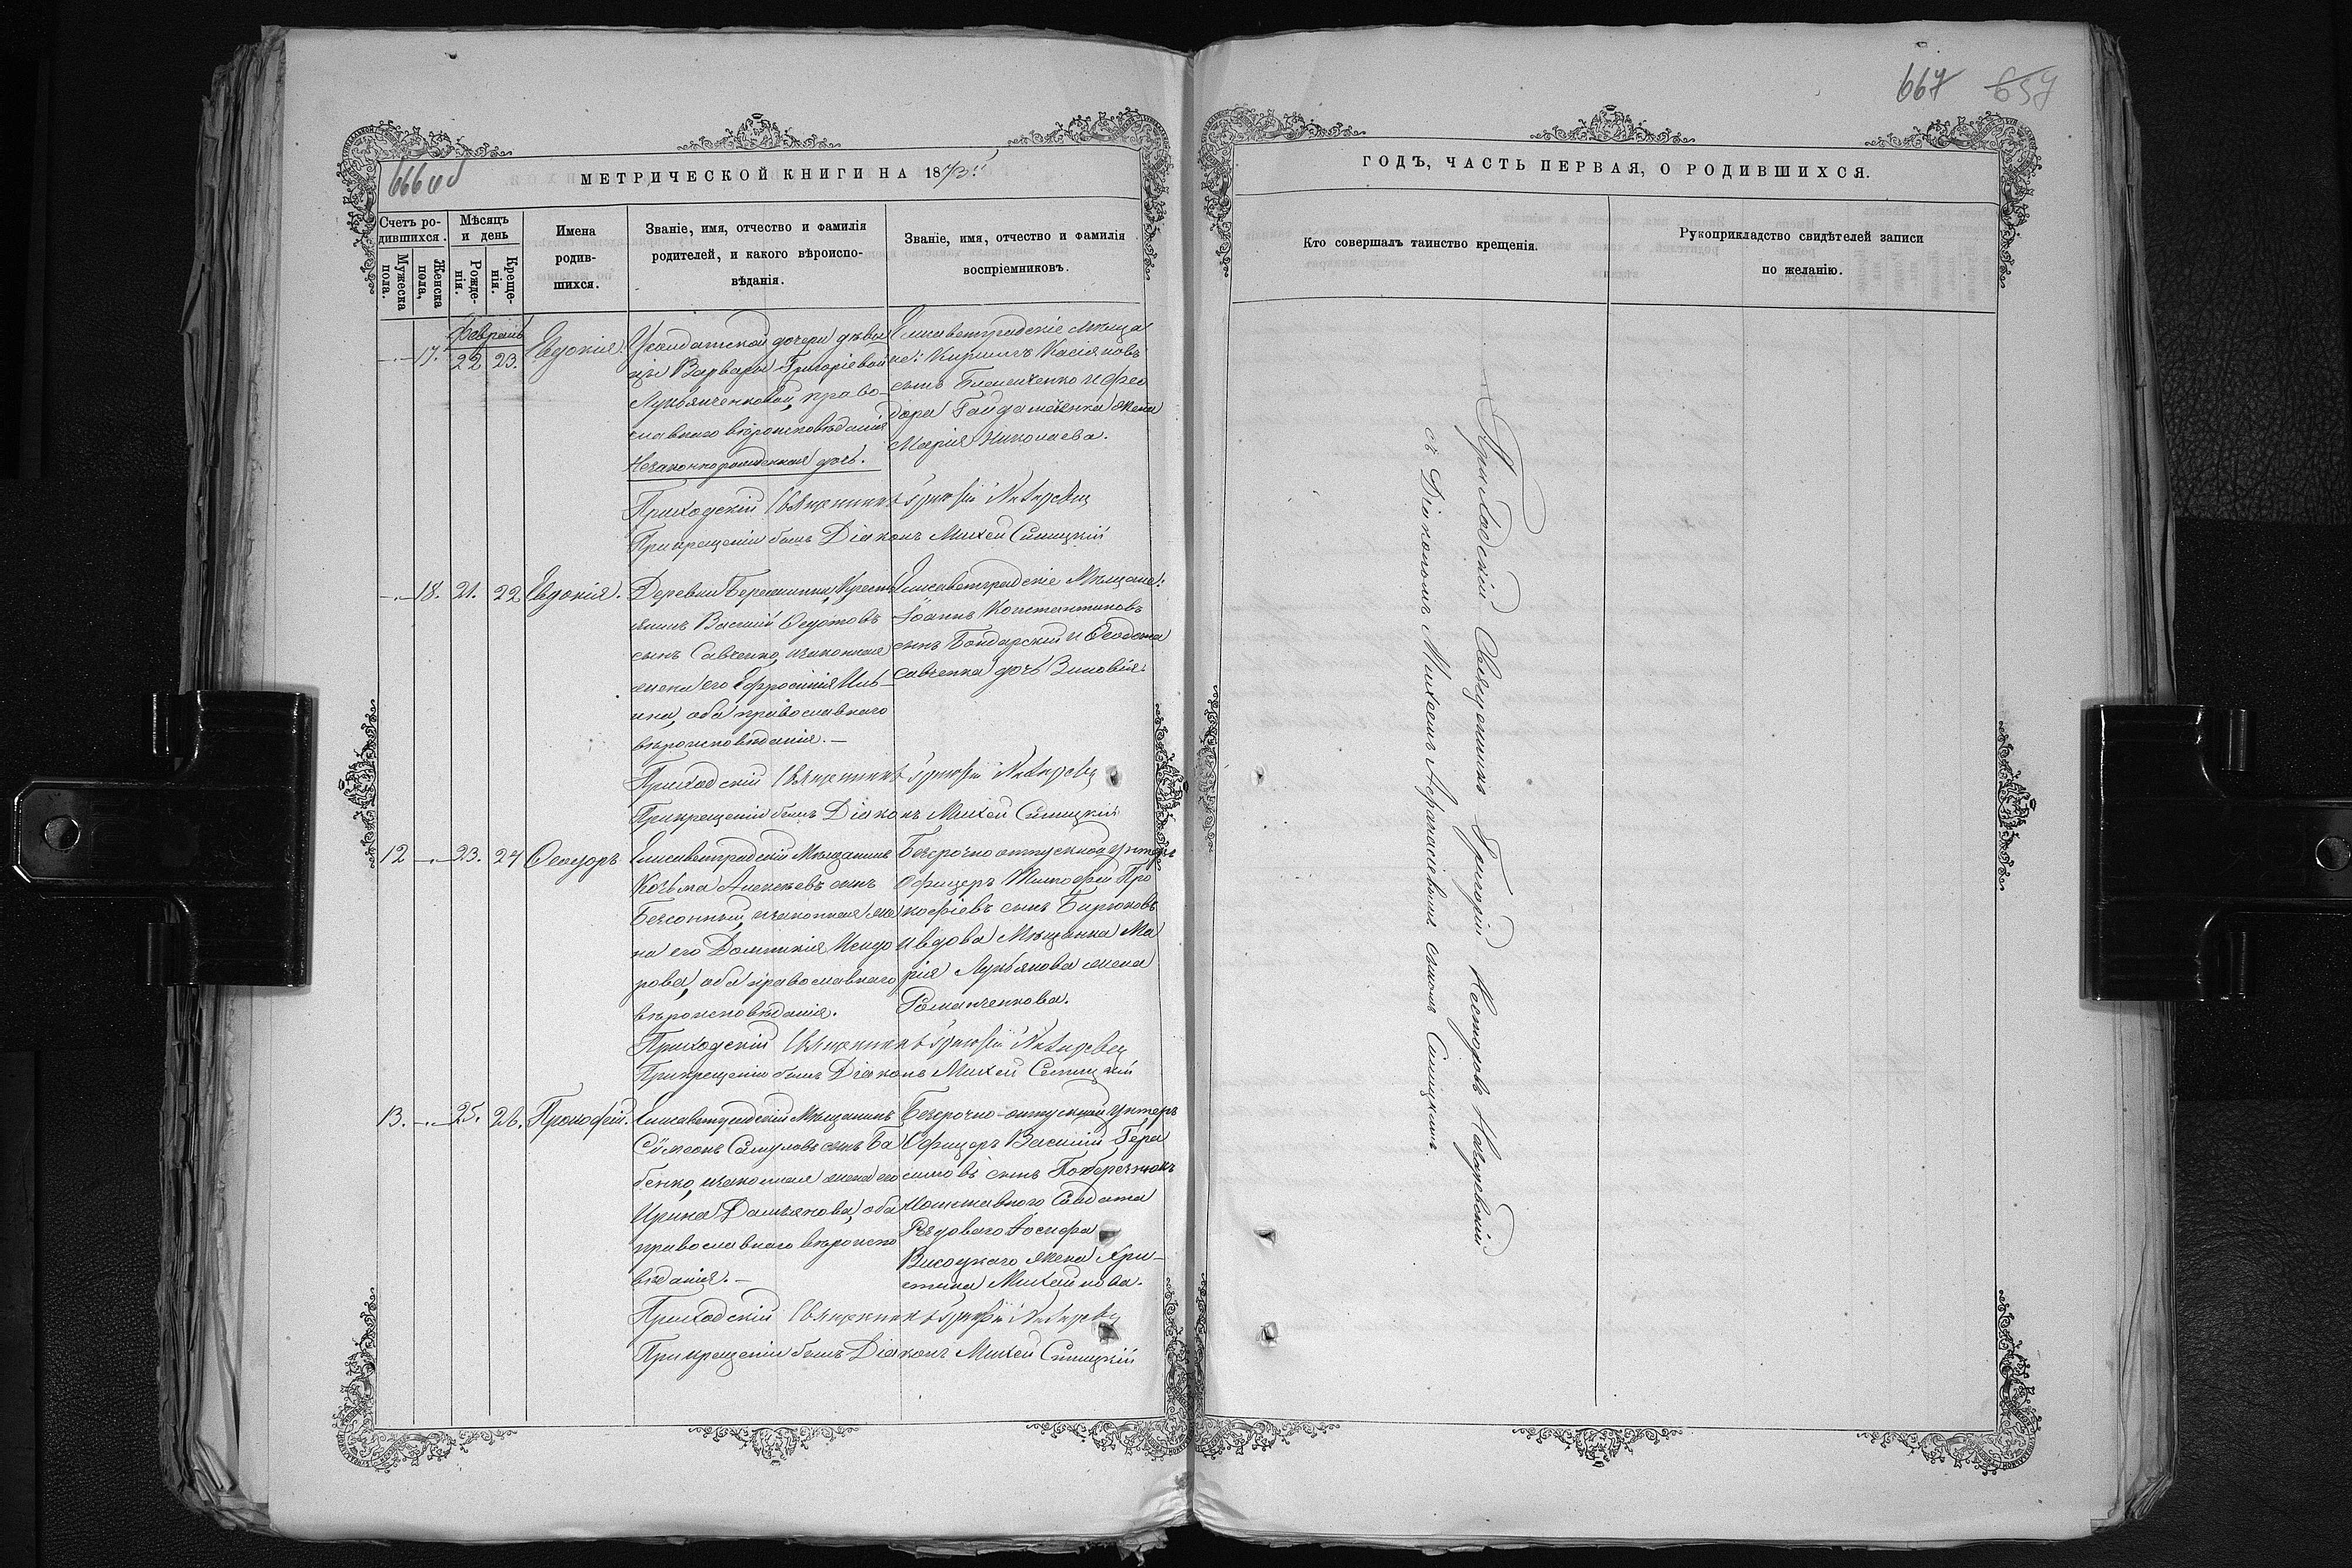 667 657
666 об
МЕТРИЧЕСКОЙ КНИГИ НА 1873
Счетъ ро-
дившихся.
Мужеска
пола.
Женска
пола.
Мѣсяцъ
и день
Рожде-
нія.
Креще-
нія.
Имена
родив-
шихся.
Званіе, имя, отчество и фамилія
родителей, и какого вѣроиспо-
вѣданія.
Званіе, имя, отчество и фамилія
воспріемниковъ.
Февраль
17. 22 23. Евдокія.
Солдатской дочери дѣви
цы Варвары Григоріевой
Лукьянченковой, право-
славнаго вѣроисповѣданія
Незаконнорожденная дочь.
Елисаветградскіе мѣща
не: Кириллъ Касіяновъ
сынъ и Ѳео
дора Гайдаменка жена
Марія Николаева.
Приходскій Священникъ Григорій
При крещеніи былъ Діаконъ Михей Синицкій
18. 21. 22 Евдокія.
Деревни Бережинки, Кресть
янинъ Василій Ѳедотовъ
сынъ Савченко, и законная
жена его Ефросинія Иль-
ина, оба православнаго
вѣроисповѣданія.
Елисаветградскіе Мѣщане:
Іоаннъ Константиновъ
сынъ Бондарскій и Ѳеодота
Савченка дочь Зиновія.
Приходскій Священникъ Григорій
При крещеніи былъ Діаконъ Михей Синицкій
12 23. 24 Ѳеодоръ
Елисаветградскій Мѣщанинъ
Козьма Алексѣевъ сынъ
и законная же
на его Домникія Исидо
рова, оба православнаго
вѣроисповѣданія.
Безсрочно отпускной Унтеръ
Офицеръ Тимофей Про
кофіевъ сынъ Бирюковъ
и вдова Мѣщанка Ма
рія Лукьянова жена
Романченкова.
Приходскій Священникъ Григорій
При крещеніи былъ Діаконъ Михей Синицкій
13. 25. 26. Прокофій.
Елисаветградскій Мѣщанинъ
Сѵмеонъ Самуловъ сынъ Ба
бенко, и законная жена его
Ирина Дамьянова, оба
православнаго вѣроиспо
вѣданія.
Безсрочно-отпускной Унтеръ
Офицеръ Василій Гера
симовъ сынъ Побережнюкъ
и отставного Солдата
Рядоваго Іосифа
Высоцкаго жена Хри-
стина Михайлова.
Приходскій Священникъ Григорій
При крещеніи былъ Діаконъ Михей Синицкій
ГОДЪ, ЧАСТЬ ПЕРВАЯ, О РОДИВШИХСЯ.
Кто совершалъ таинство крещенія.
Рукоприкладство свидѣтелей записи
по желанію.
Приходскій Священникъ Григорій Несторовъ
съ Діакономъ Михеемъ Афанасіевымъ сыномъ Синицкимъ.